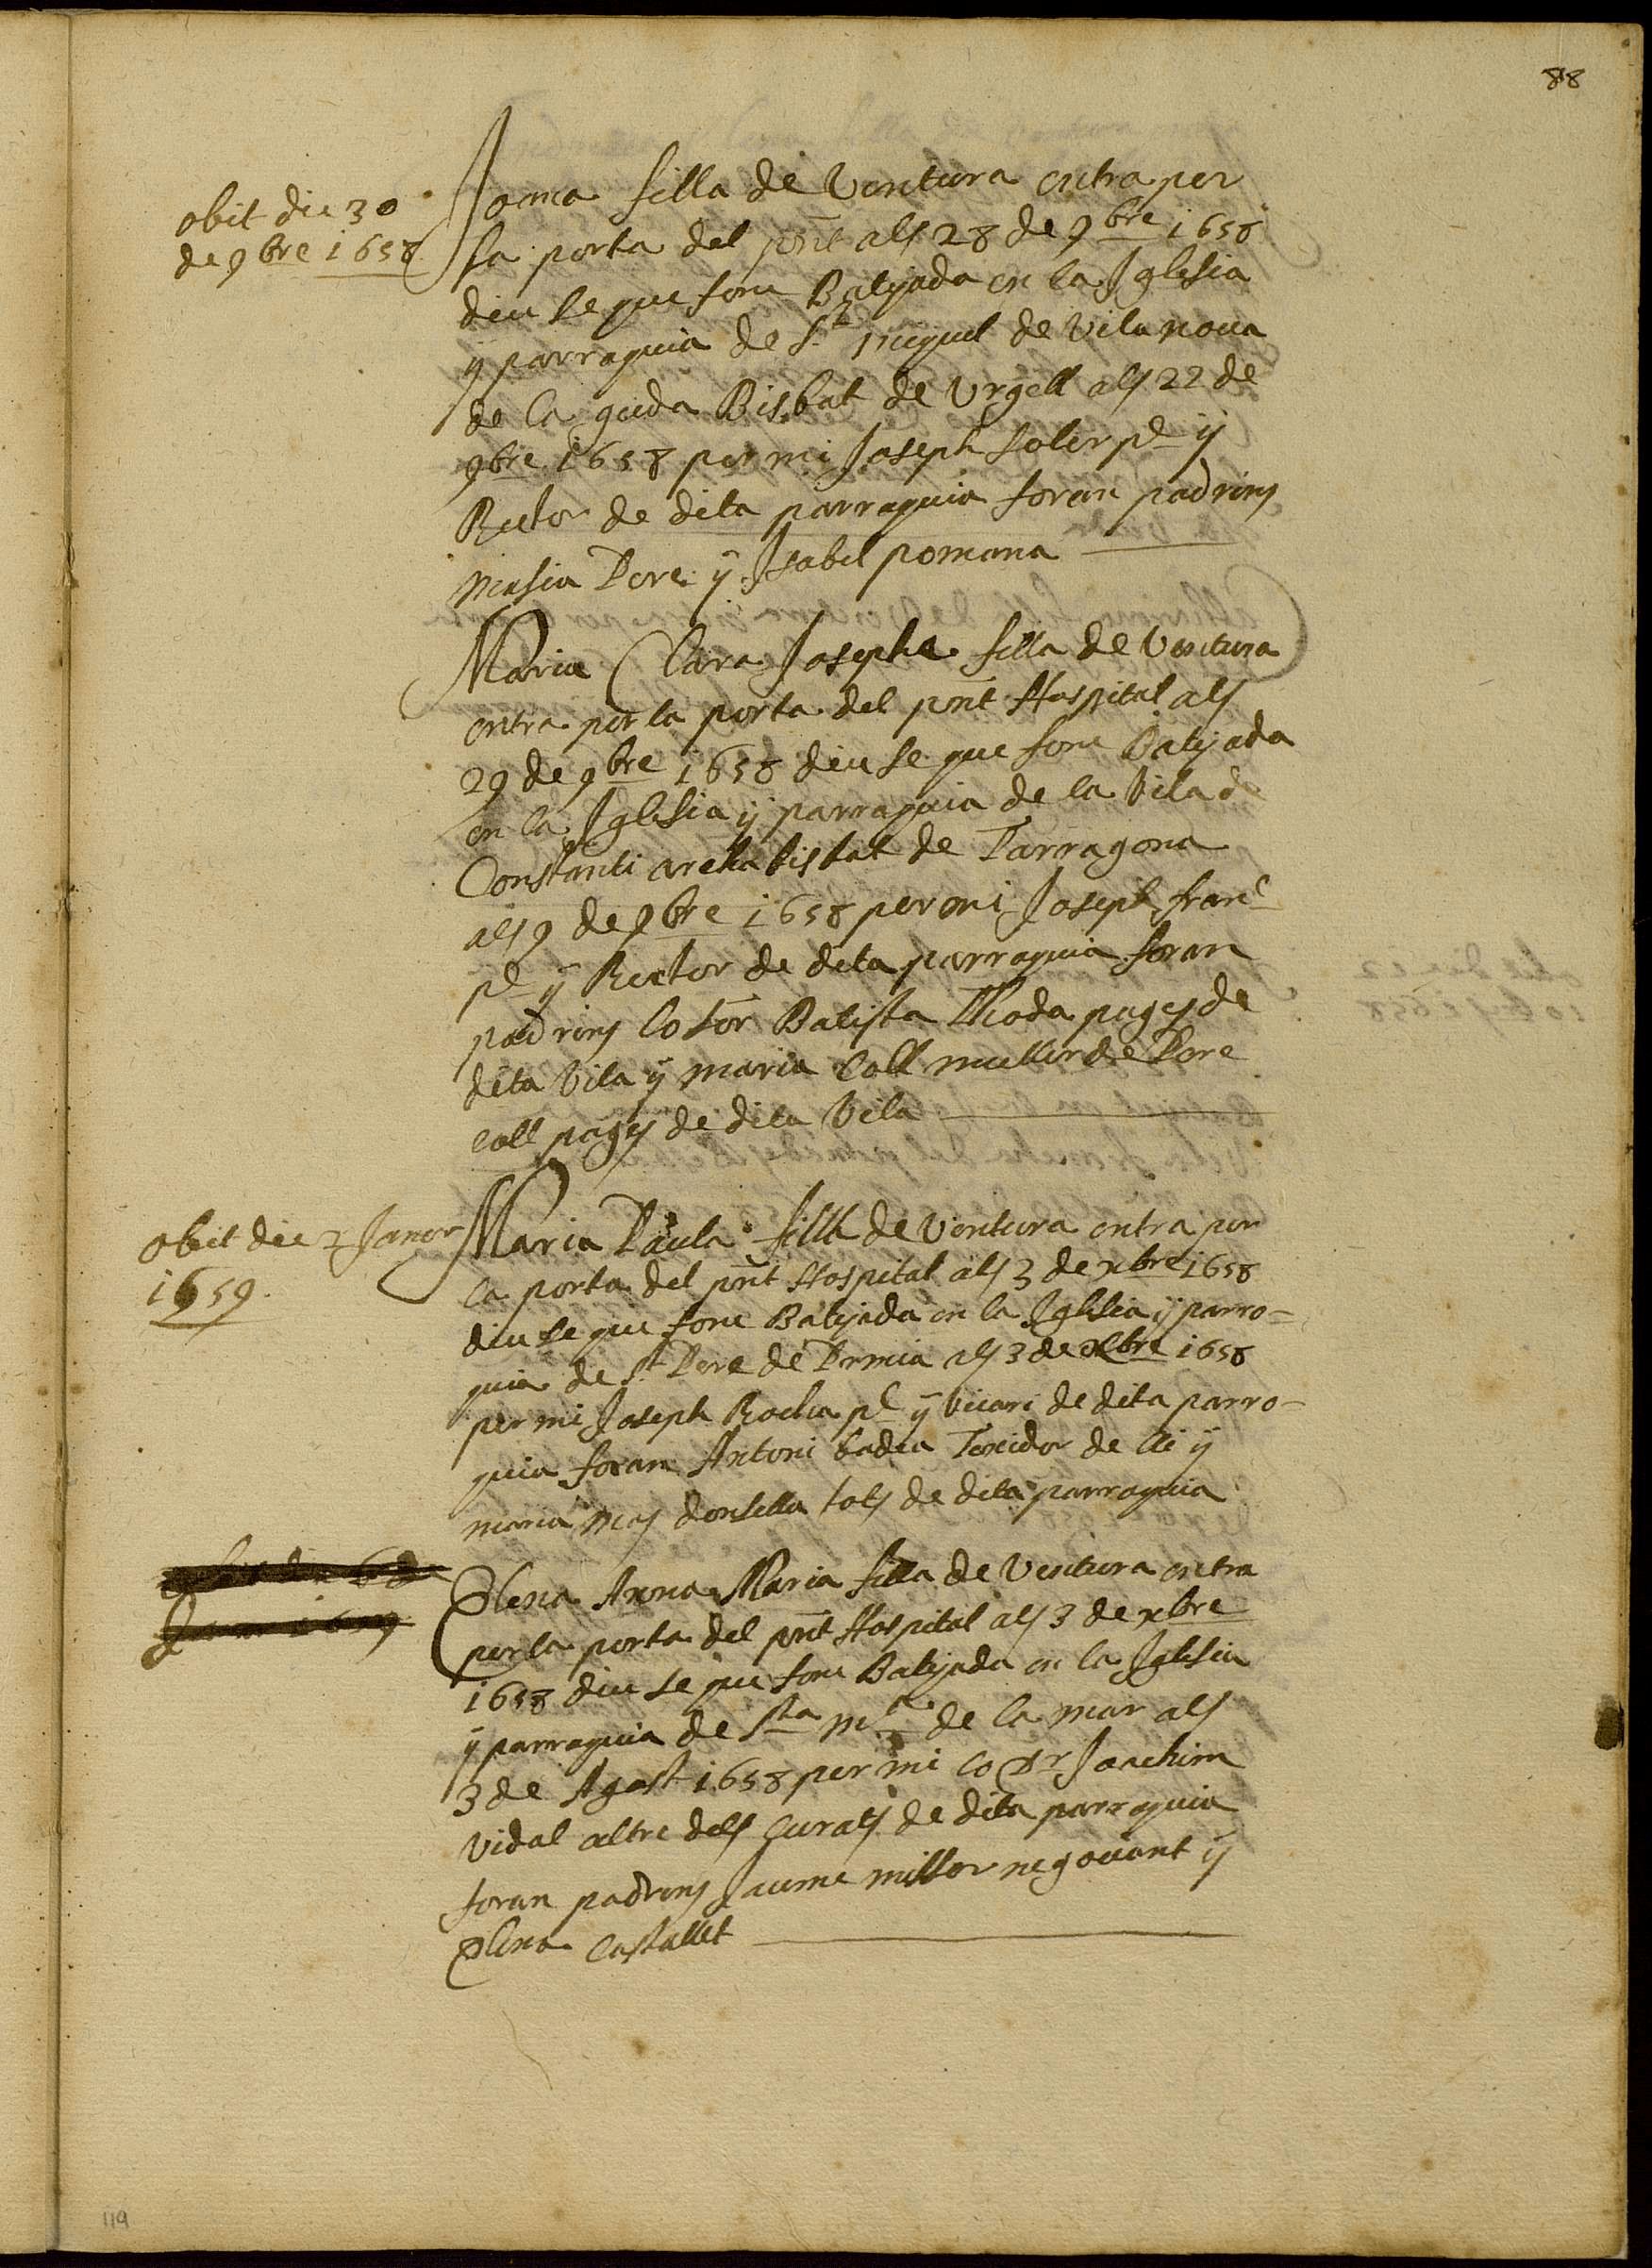 88
obit die 30
de 9bre 1658
Joana filla de Ventura entra per
la porta del pnt als 28 de 9bre 1658
diu se que fonc Batejada en la Iglesia
y parraquia de St miquel de Vila nova
de la guda Bisbat de Urgell als 22 de
9bre 1658 per mi Joseph Soler pe y
Rector de dita parraquia foran padrins
Masia Pere y Isabel pomana
Maria Clara Josepha filla de Ventura
entra per la porta del pnt Hospital als
29 de 9bre 1658 diu se que fonc Batejada
en la Iglesia y parraquia de la Vila de
Constanti archabisbat de Tarragona
als 9 de 9bre 1658 per mi Joseph franc
pe y Rector de dita parraquia foran
padrins lo Sor Batista Moda pages de
dita Vila y maria Coll muller de Pere
Coll pages de dita Vila
obit die 2 Janer
1659
Maria Paula filla de Ventura entra per
la porta del pnt Hospital als 3 de xbre 1658
diu se que fonc Batejada en la Iglesia y parro=
quia de St Pere de Premia als 3 de xbre 1658
per mi Joseph Rocha pe y vicari de dita parro-
quia foran Antoni badia Texidor de lli y
maria Mas donsella tots de dita parraquia
Elena Anna Maria filla de Ventura entra
per la porta del pnt Hospital als 3 de xbre
1658 diu se que fonc Batejada en la Iglesia
y parraquia de Sta Ma de la mar als
3 de Agost 1658 per mi lo Dr Joachim
Vidal altre dels Curats de dita parraquia
foran padrins Jaume millor negociant y
Elena Castallet
119